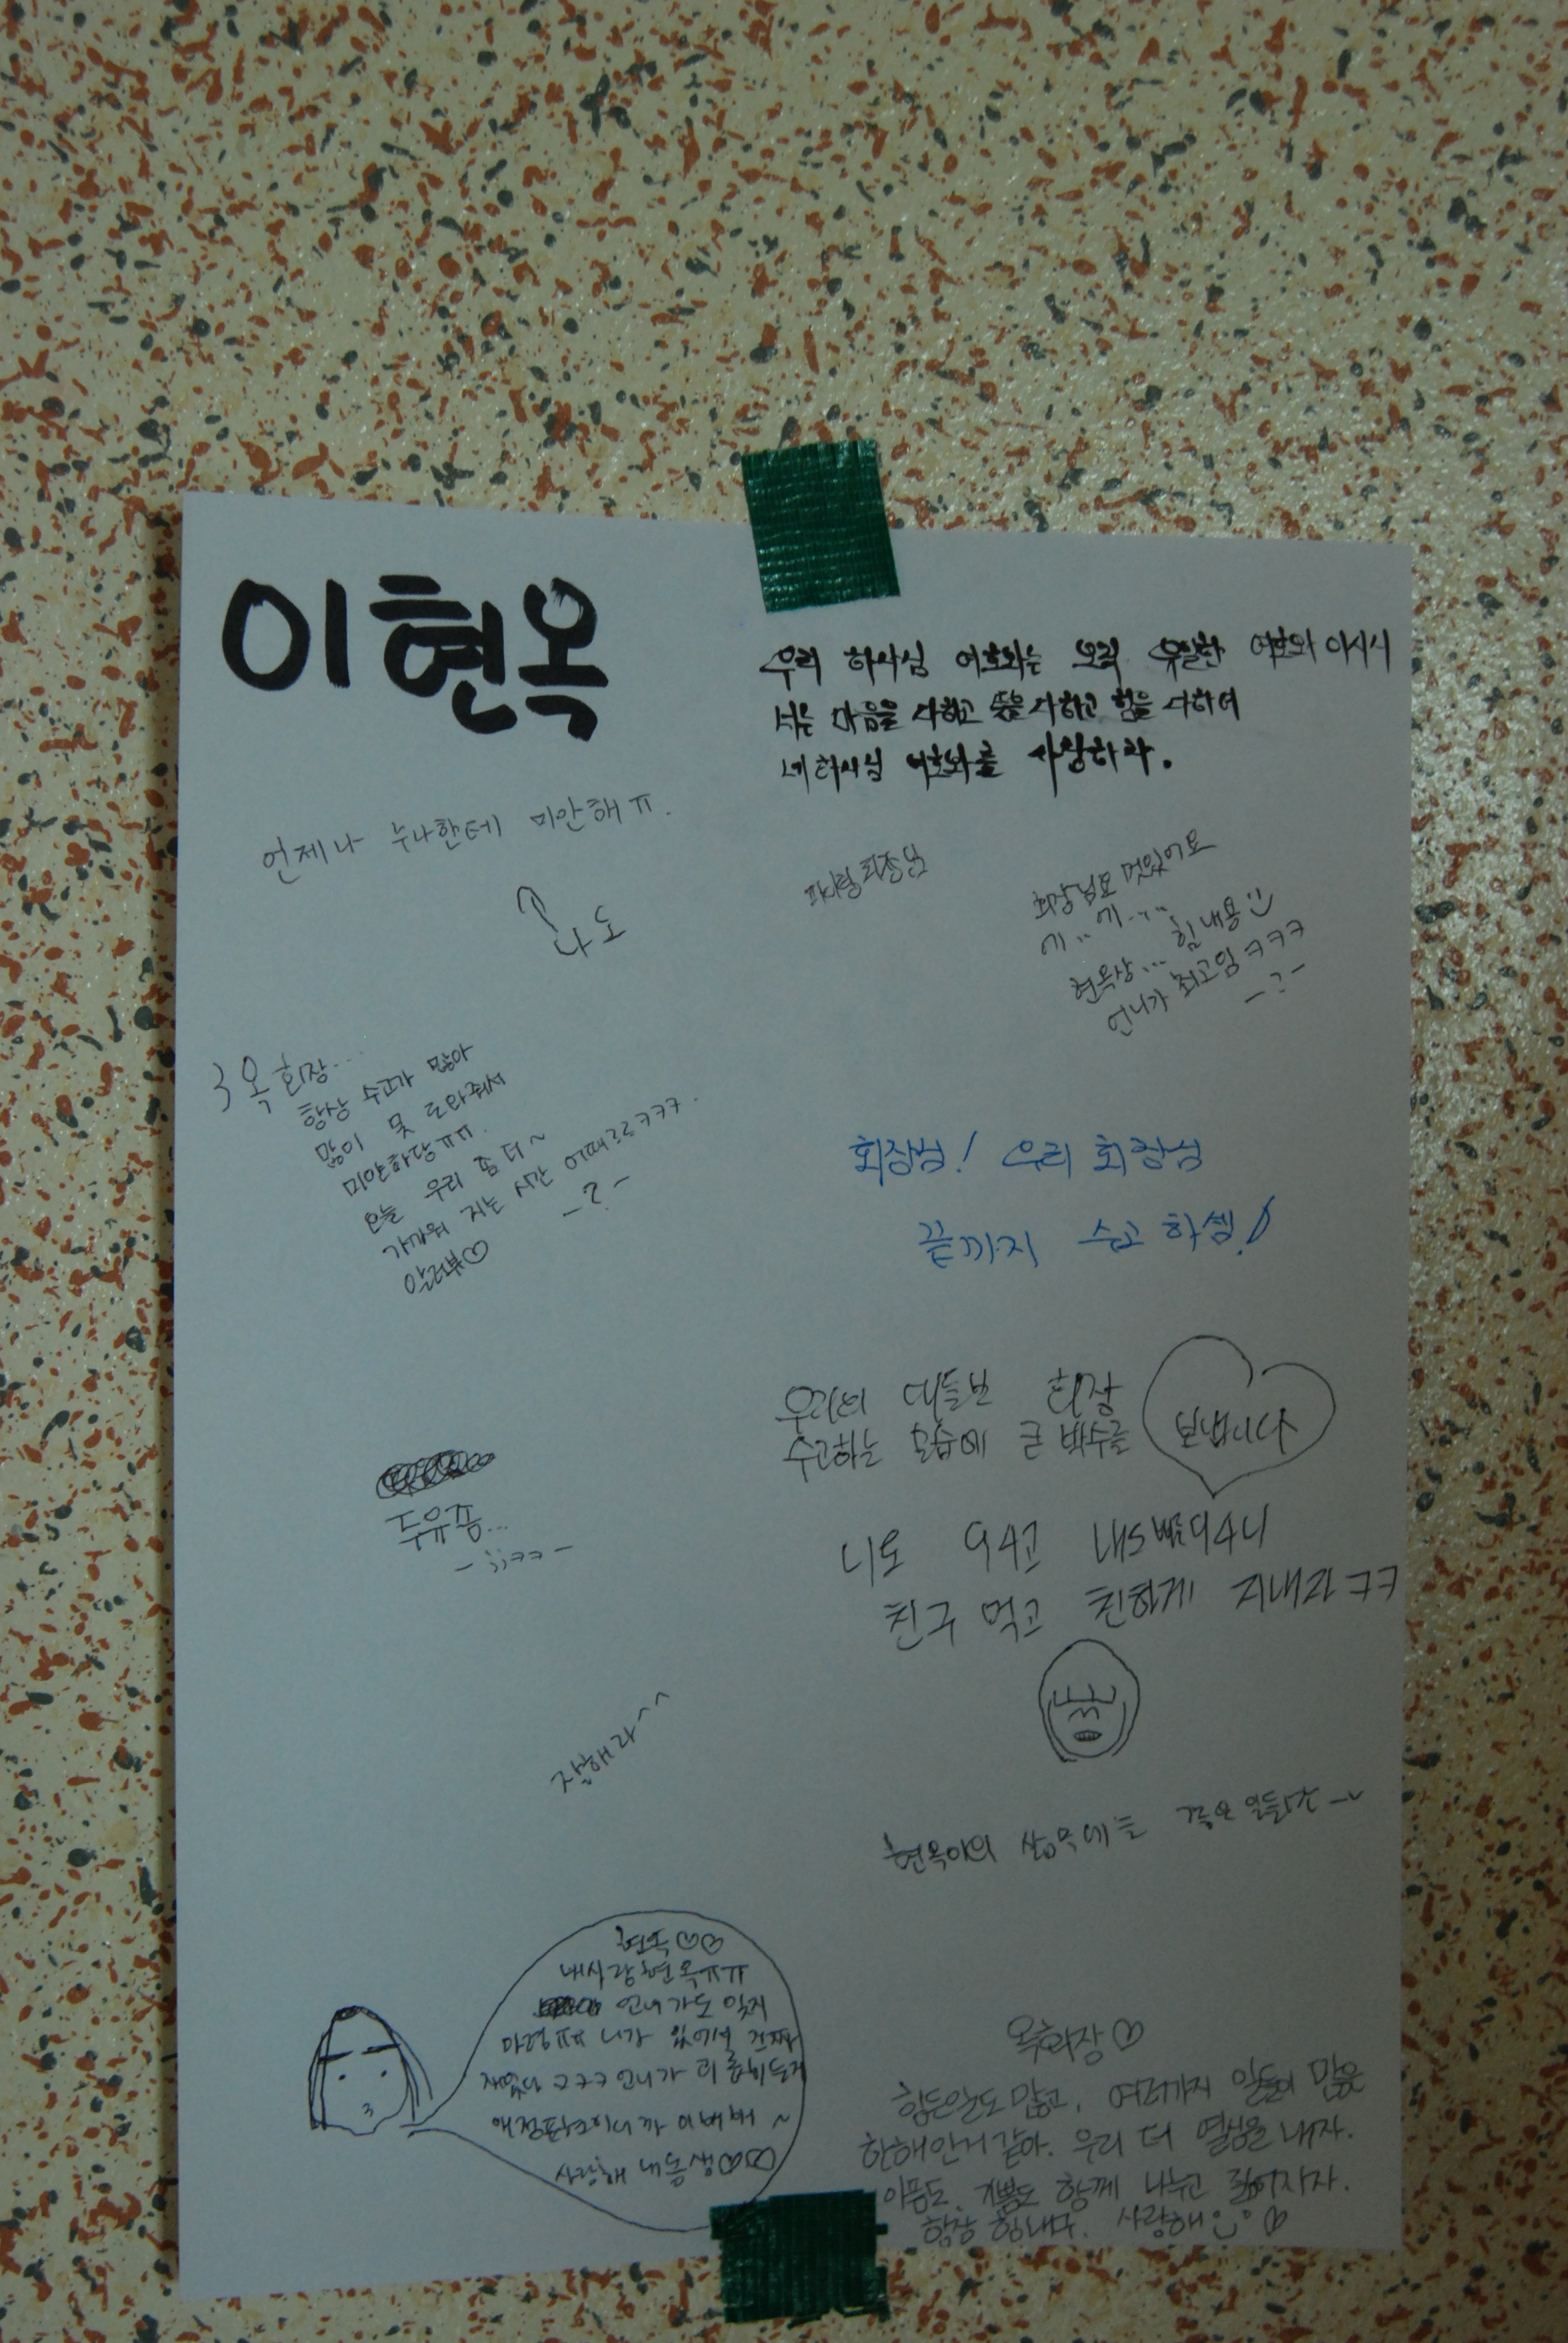 이현옥
우리 하나님 여호와는 오직 유일한 여호와 이시니
너는 마음을 다하고 뜻을 다하고 힘을 다하여
네 하나님 여호와를 사랑하라.
언제나 누나한테 미안해ㅠ.
나도
파이팅 회장님
회장님요 멋있어요
에.. 에....
현옥상... 힘내용 :)
언니가 최고임 ㅋㅋㅋ
-?-
옥회장...
항상 수고가 많아
많이 못 도와줘서
미안하당ㅠㅠ.
오늘 우리 좀 더~
가까워 지는 시간 어때ㄹㄹㅋㅋㅋ.
-?-
알러뷰♡
회장님! 우리 회장님
끝까지 수고 하셈!
우리의 대들보 회장
수고하는 모습에 큰 박수를 보냅니다
두유쫌...
-;;ㅋㅋ-
니도 94고 내도 빠른94니
친구 먹고 친하게 지내자 ㅋㅋ
잘해라^^
현옥아의
현옥♡♡
내사랑현옥ㅠㅠ
언니가도 잊지
마렴ㅠㅠ 니가 있어서 진짜
재밌다 ㅋㅋㅋ 언니가
사랑해 내동생♡♡
옥회장♡
힘든일도 많고, 여러가지 일들이 많은
한해인거 같아. 우리 더 열심을 내자.
아픔도, 기쁨도 함께 나누고
힘내구. 사랑해 ♡